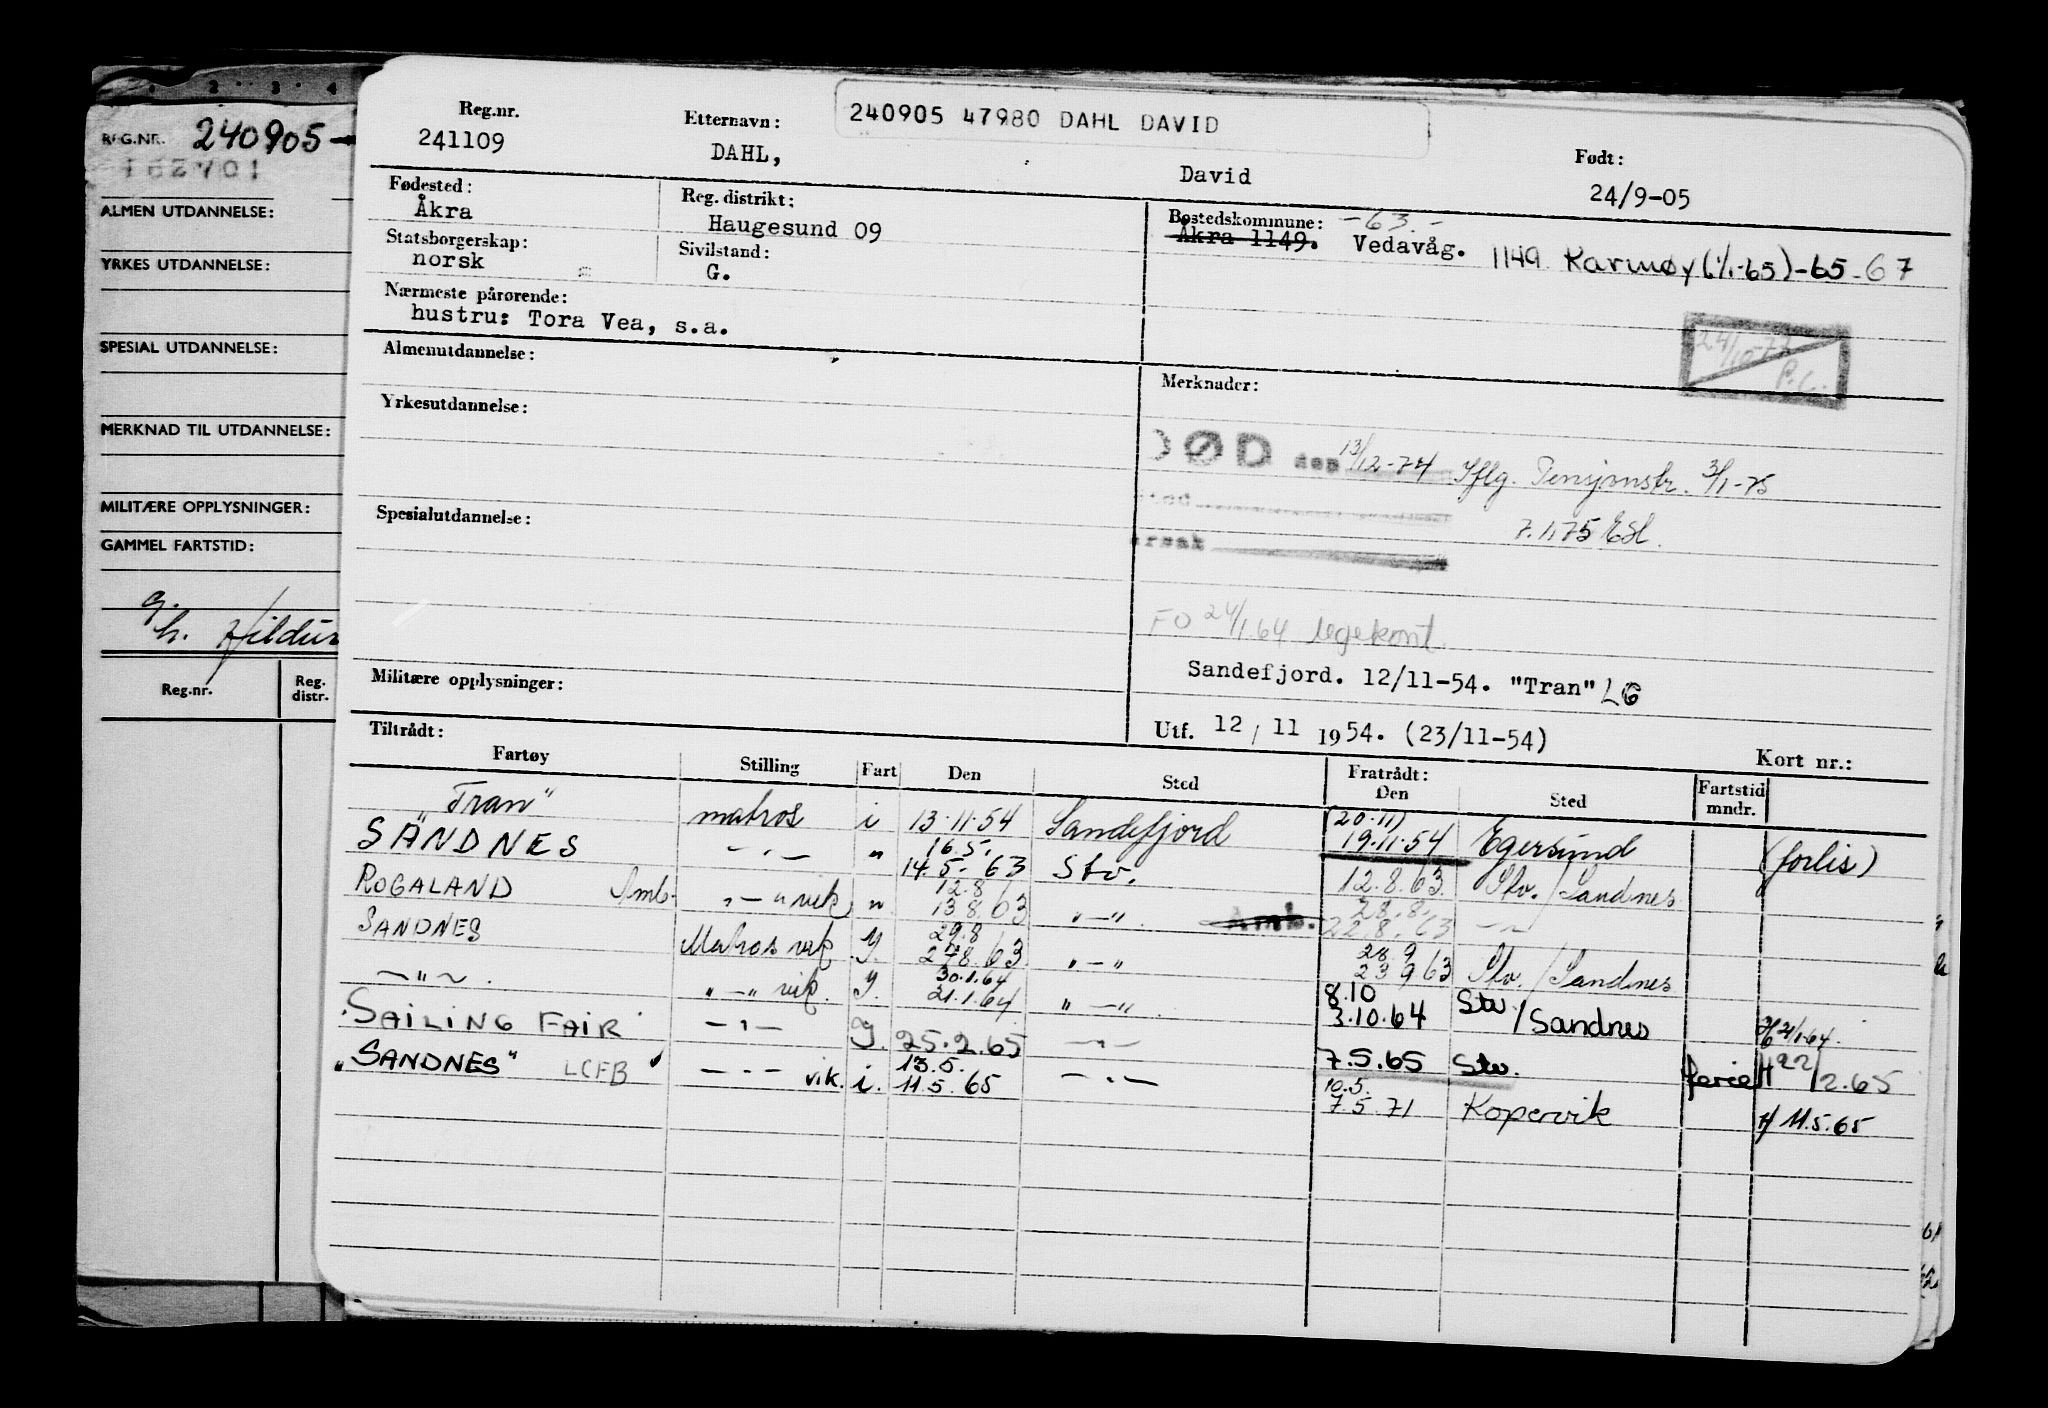 REG.NR. 240905-
ALMEN UTDANNELSE:
YRKES UTDANNELSE:
SPESIAL UTDANNELSE:
MERKNAD TIL UTDANNELSE:
MILITÆRE OPPLYSNINGER:
GAMMEL FARTSTID:
g.
h. Hildur
Reg.nr. Reg. distr.
Reg.nr. Etternavn: 240905 47980 DAHL DAVID Født:
241109 DAHL, David 24/9-05
Fødested: Reg. distrikt: Bostedskommune: -63.-
Åkra Haugesund 09 Åkra 1149. Vedavåg. 1149 Karmøy (1/1-65)-65-67
Statsborgerskap: Sivilstand:
norsk G.
Nærmeste pårørende:
hustru: Tora Vea, s.a.
24/10-72 P.C.
Almenutdannelse: Merknader:
Yrkesutdannelse:
DØD den 13/12-74 Iflg. Pensjonstr. 3/1-75
sted
7.1.75
årsak
Spesialutdannelse:
FO 24/1.64 legekont.
Sandefjord. 12/11-54. "Tran" LG
Militære opplysninger:
Utf. 12/11 1954. (23/11-54)
Tiltrådt: Kort nr.:
Fartøy Stilling Fart Den Sted Fratrådt: Den Sted Fartstid mndr.
"Tran" matros i 13.11.54 Sandefjord (20.11) 19.11.54 Egersund (forlis)
SANDNES -"- " 16.5. 14.5.-63 Stv. 12.8.63 Stv./Sandnes
ROGALAND Smb. "-" vik " 12.8 13.8.63 "-" Amb. 28.8. 22.8.63 -"-
SANDNES Matros vik y. 29.8 27.8.63 "-" 28.9 23.9.63 Stv./Sandnes
-"-. "-" vik. y. 30.1.64 21.1.64 "-" 8.10 3.10.64 Stv/Sandnes 21/1-64.
"SAILING FAIR" -"- y. 25.2.65 -"- 7.5.65 Stv. ferie H 22/2.65
"SANDNES" LCFB -"- vik. i. 13.5. 11.5.65 -"- 10.5. 7.5.71 Kopervik H 11.5.65